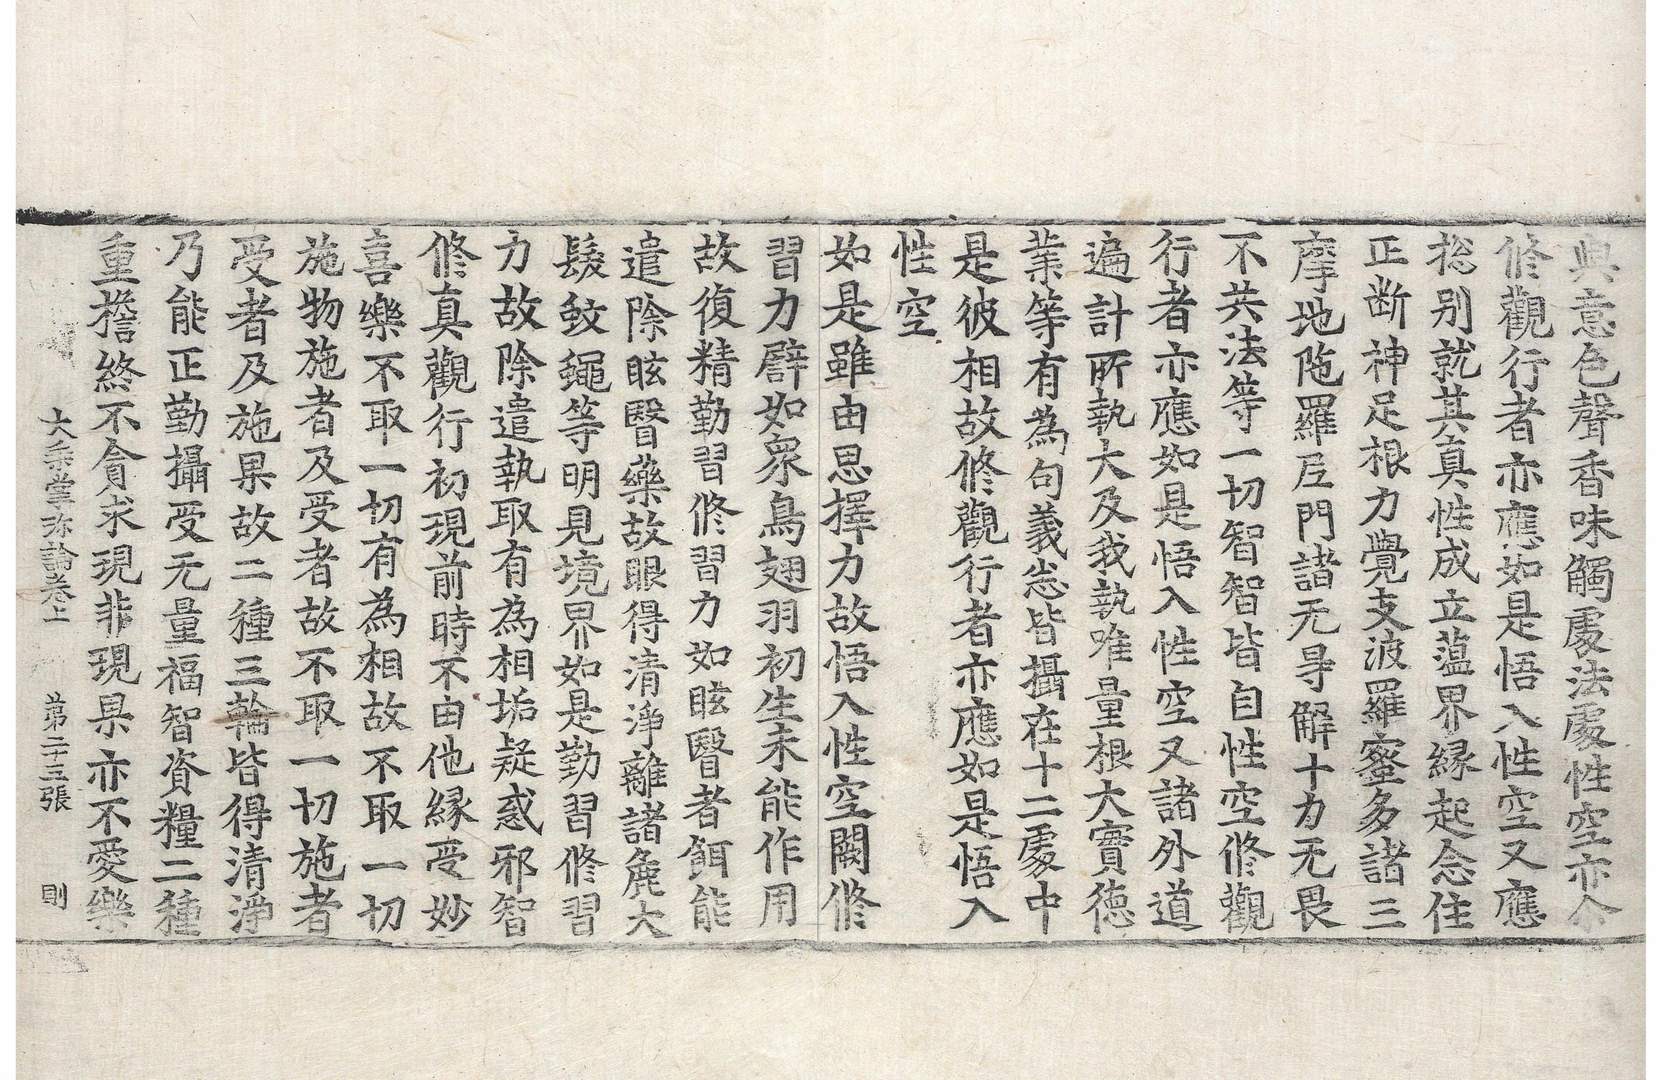 與意色聲香味觸處法處性空亦尒
修觀行者亦應如是悟入性空又應
捴別就其真性成立蘊界緣起念住
正断神足根力覺支波羅蜜多諸三
摩地陁羅尼門諸无㝵解十力无畏
不共法等一切智智皆自性空修觀
行者亦應如是悟入性空又諸外道
遍計所執大及我執唯量根大實德
業等有為句義㤀皆攝在十二處中
是彼相故修觀行者亦應如是悟入
性空
如是雖由思擇力故悟入性空闕修
習力譬如眾鳥翅羽初生未能作用
故復精勤習修習力如眩瞖者餌能
遣除眩瞖藥故眼得清淨離諸麁大
髮蚊蠅等明見境界如是勤習修習
力故除遣執取有為相垢疑惑邪智
修真觀行初現前時不由他緣受妙
喜樂不取一切有為相故不取一切
施物施者及受者故不取一切施者
受者及施果故二種三輪皆得清淨
乃能正勤攝受无量福智資糧二種
重檐終不貪求現非現果亦不愛樂
大乘掌珍論卷上 第二十三張 則